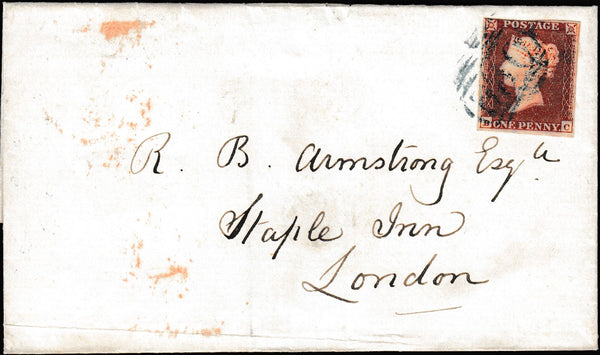 POSTAGE
B ONE PENNY C
R. B. Armstrong Esqr
Staple Inn
London